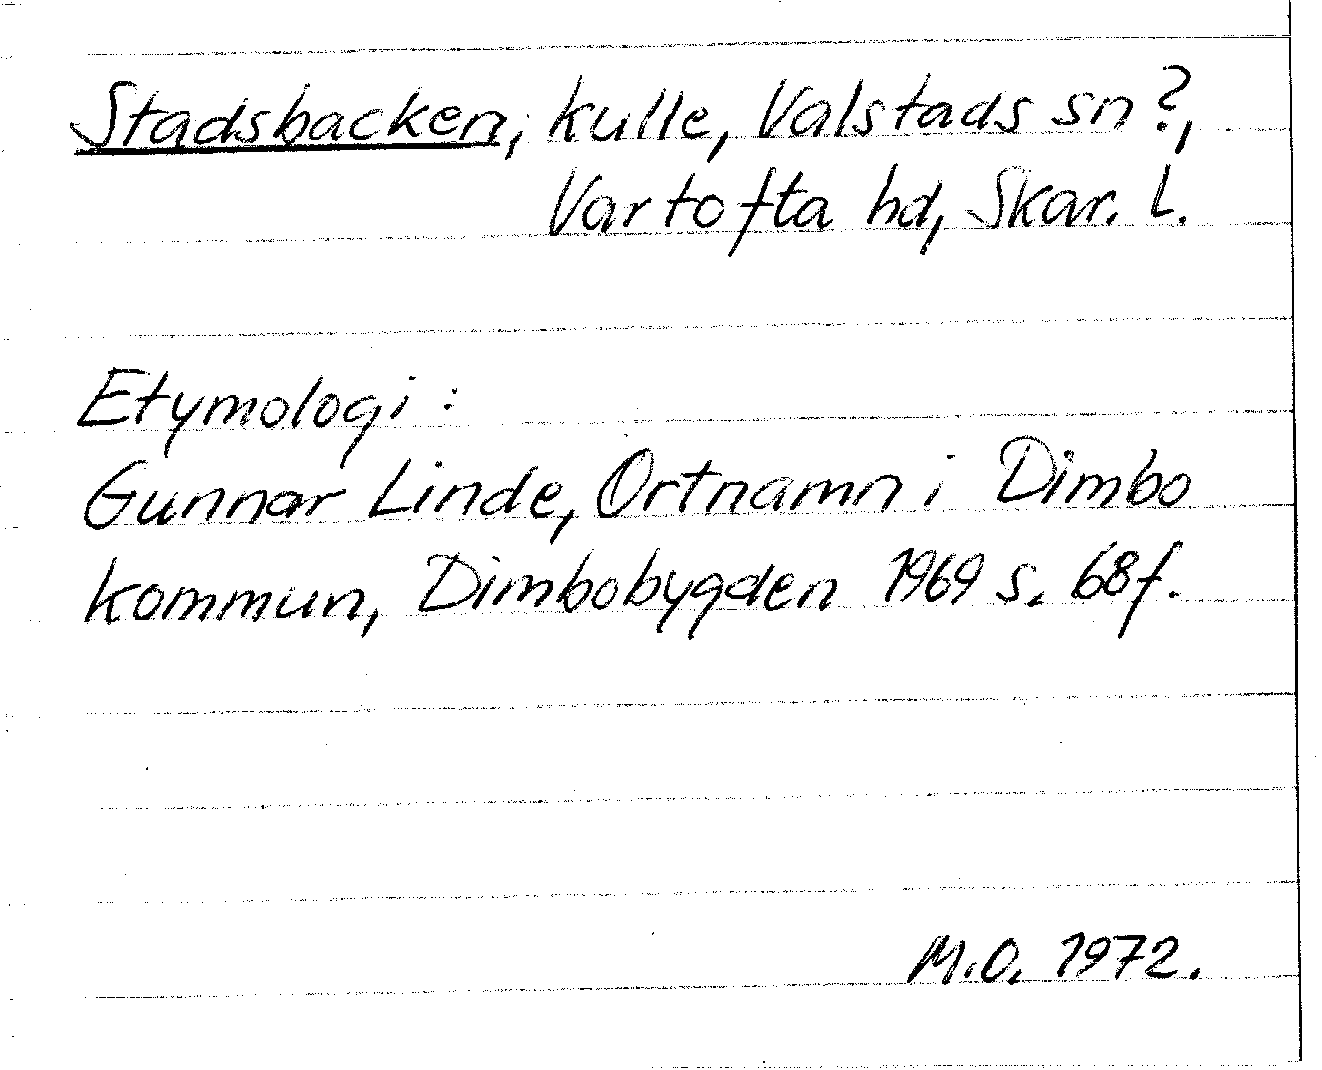 Stadsbacken, kulle, Valstads sn?,
Vartofta hd, Skar. L.
Etymologi:
Gunnar Linde, Ortnamn i Dimbo
kommun, Dimbobygden 1969 s. 68f.
M.O. 1972.